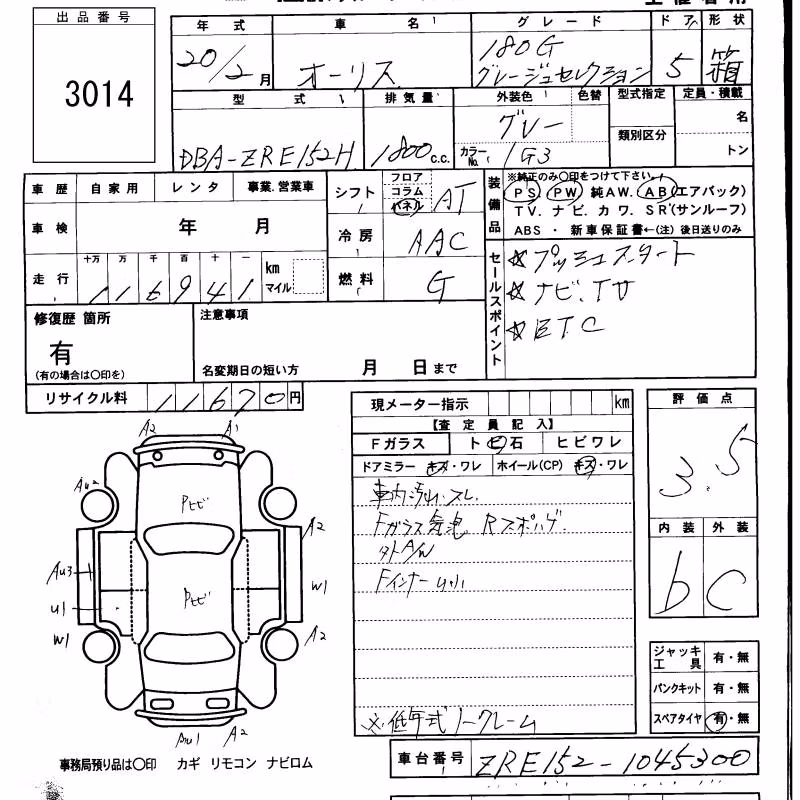 出品番号
3014
年式 車名 グレード ドア 形状
20/2月 オーリス 180G グレージュセレクション 5 箱
型式 排気量 外装色 色替 型式指定 定員・積載
DBA-ZRE152H 1800c.c. グレー 名
カラーNo. 1G3 類別区分 トン
車歴 自家用 レンタ 事業.営業車
車検 年 月
走行 十万 万 千 百 十 一 km マイル
116941
シフト フロア コラム パネル AT
冷房 AAC
燃料 G
装備品
※純正のみ〇印をつけて下さい
PS. PW 純AW. AB(エアバック)
TV. ナビ. カワ. SR(サンルーフ)
ABS・新車保証書←(注)後日送りのみ
セールスポイント
☆プッシュスタート
☆ナビ.TV
☆ETC
修復歴 箇所
有
(有の場合は〇印を)
注意事項
名変期日の短い方 月 日まで
リサイクル料 11670円
現メーター指示 km
【査定員記入】
Fガラス トビ石 ヒビワレ
ドアミラー キズ・ワレ ホイール(CP) キズ・ワレ
車内汚れ.スレ
Fガラス気泡 Rスポハゲ
外A/W
Fインナーu小
※低年式ノークレーム
評価点
3.5
内装 外装
b C
ジャッキ工具 有・無
パンクキット 有・無
スペアタイヤ 有・無
A2 A1
Au2 Pヒビ A2
Au3
U1 Pヒビ W1
W1 A2
Au1 A2
事務局預り品は〇印 カギ リモコン ナビロム
車台番号 ZRE152-1045300